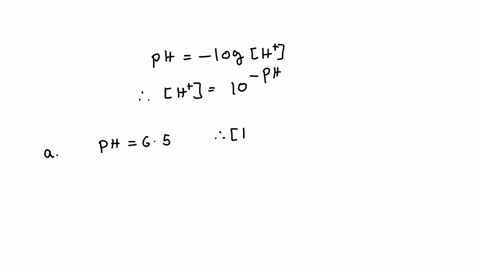 pH = -log [H⁺]
∴ [H⁺] = 10^-PH
a. PH = 6.5 ∴ [1